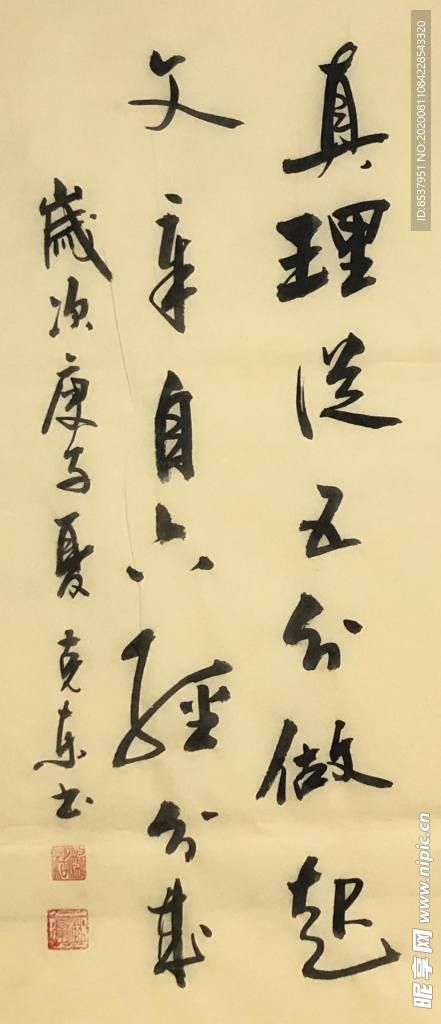 真理從五分做起
文章自六經分成
歲次庚子夏克东书
ID:8537951 NO:20200811084228543320
昵享网 www.nipic.cn